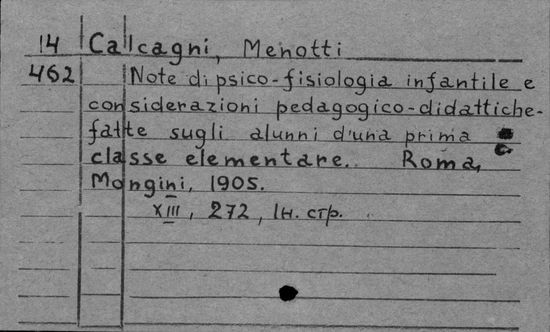 14 Calcagni, Menotti
462 Note di psico-fisiologia infantile e
considerazioni pedagogico-didattiche-
fatte sugli alunni d'una prima
classe elementare. Roma,
Mongini, 1905.
XIII, 272, Iн. стр.